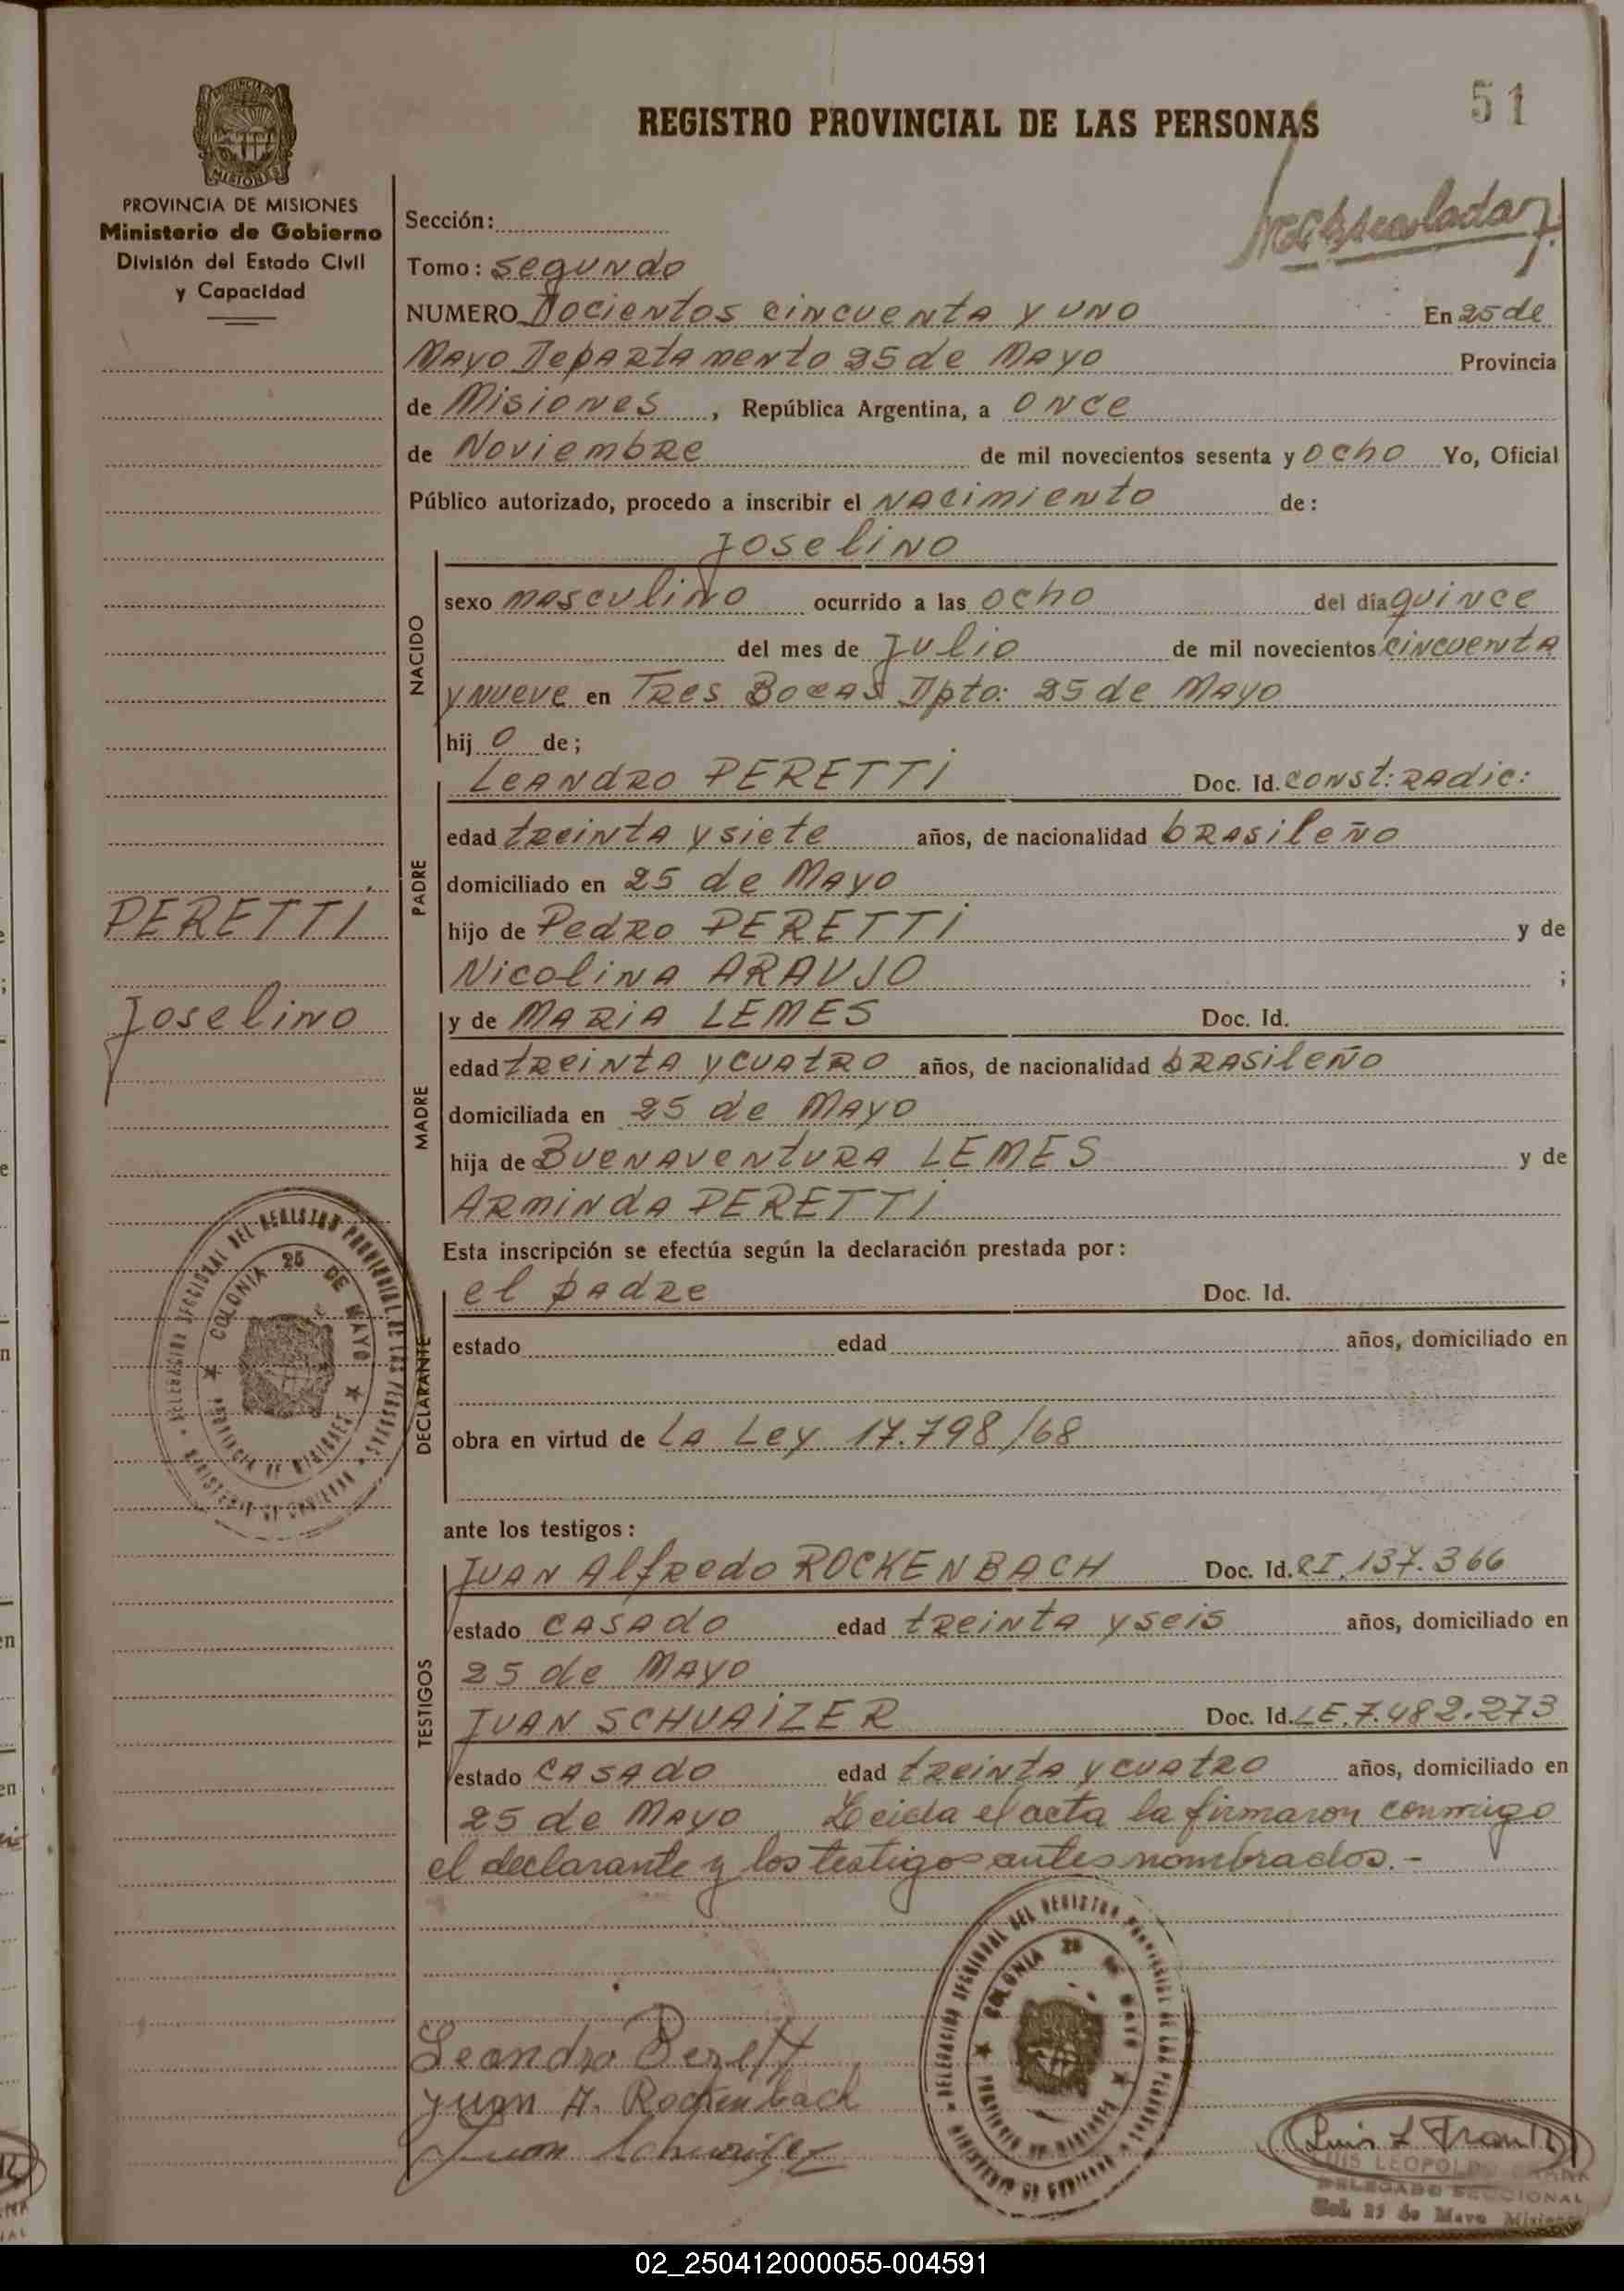 51
REGISTRO PROVINCIAL DE LAS PERSONAS
PROVINCIA DE MISIONES
Ministerio de Gobierno
División del Estado Civil
y Capacidad
Sección:
Tomo: segundo
NUMERO Docientos cincuenta y uno En 25 de
Mayo Departamento 25 de Mayo Provincia
de Misiones, República Argentina, a once
de Noviembre de mil novecientos sesenta y ocho Yo, Oficial
Público autorizado, procedo a inscribir el nacimiento de:
Joselino
NACIDO
sexo masculino ocurrido a las ocho del día quince
del mes de Julio de mil novecientos cincuenta
y nueve en Tres Bocas Dpto: 25 de Mayo
hij o de;
PADRE
Leandro PERETTI Doc. Id. const: radic:
edad treinta y siete años, de nacionalidad brasileño
domiciliado en 25 de Mayo
hijo de Pedro PERETTI y de
Nicolina ARAUJO ;
PERETTI
Joselino
MADRE
y de MARIA LEMES Doc. Id.
edad treinta y cuatro años, de nacionalidad brasileño
domiciliada en 25 de Mayo
hija de Buenaventura LEMES y de
Arminda PERETTI
Esta inscripción se efectúa según la declaración prestada por:
DECLARANTE
el padre Doc. Id.
estado edad años, domiciliado en
obra en virtud de la Ley 17.798/68
DELEGACION SECCIONAL DEL REGISTRO PROVINCIAL DE LAS PERSONAS
MINISTERIO DE GOBIERNO
COLONIA 25 DE MAYO
PROVINCIA DE MISIONES
ante los testigos:
TESTIGOS
Juan Alfredo ROCKENBACH Doc. Id. RI. 137.366
estado casado edad treinta y seis años, domiciliado en
25 de Mayo
Juan SCHUAIZER Doc. Id. LE. 7.482.273
estado casado edad treinta y cuatro años, domiciliado en
25 de Mayo Leida el acta la firmaron conmigo
el declarante y los testigos antes nombrados.-
DELEGACION SECCIONAL DEL REGISTRO PROVINCIAL DE LAS PERSONAS
MINISTERIO DE GOBIERNO
COLONIA 25 DE MAYO
PROVINCIA DE MISIONES
Leandro Perett
Juan A. Rockenbach
Juan Schuaizer
Luis L Frank
LUIS LEOPOLDO FRANK
DELEGADO SECCIONAL
Col. 25 de Mayo Misiones
02_250412000055-004591